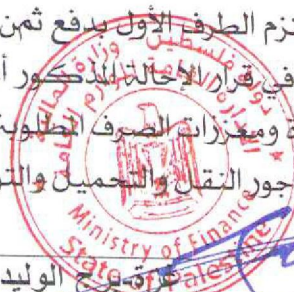 تزم الطرف الأول بدفع ثمن
في قرار الإحالة المذكور أ
ة ومعززات الصرف المطلوبة
جور النقل والتحميل والتز
غزة برج الوليد
دولة فلسطين وزارة المالية
Ministry of Finance
State of Palestine